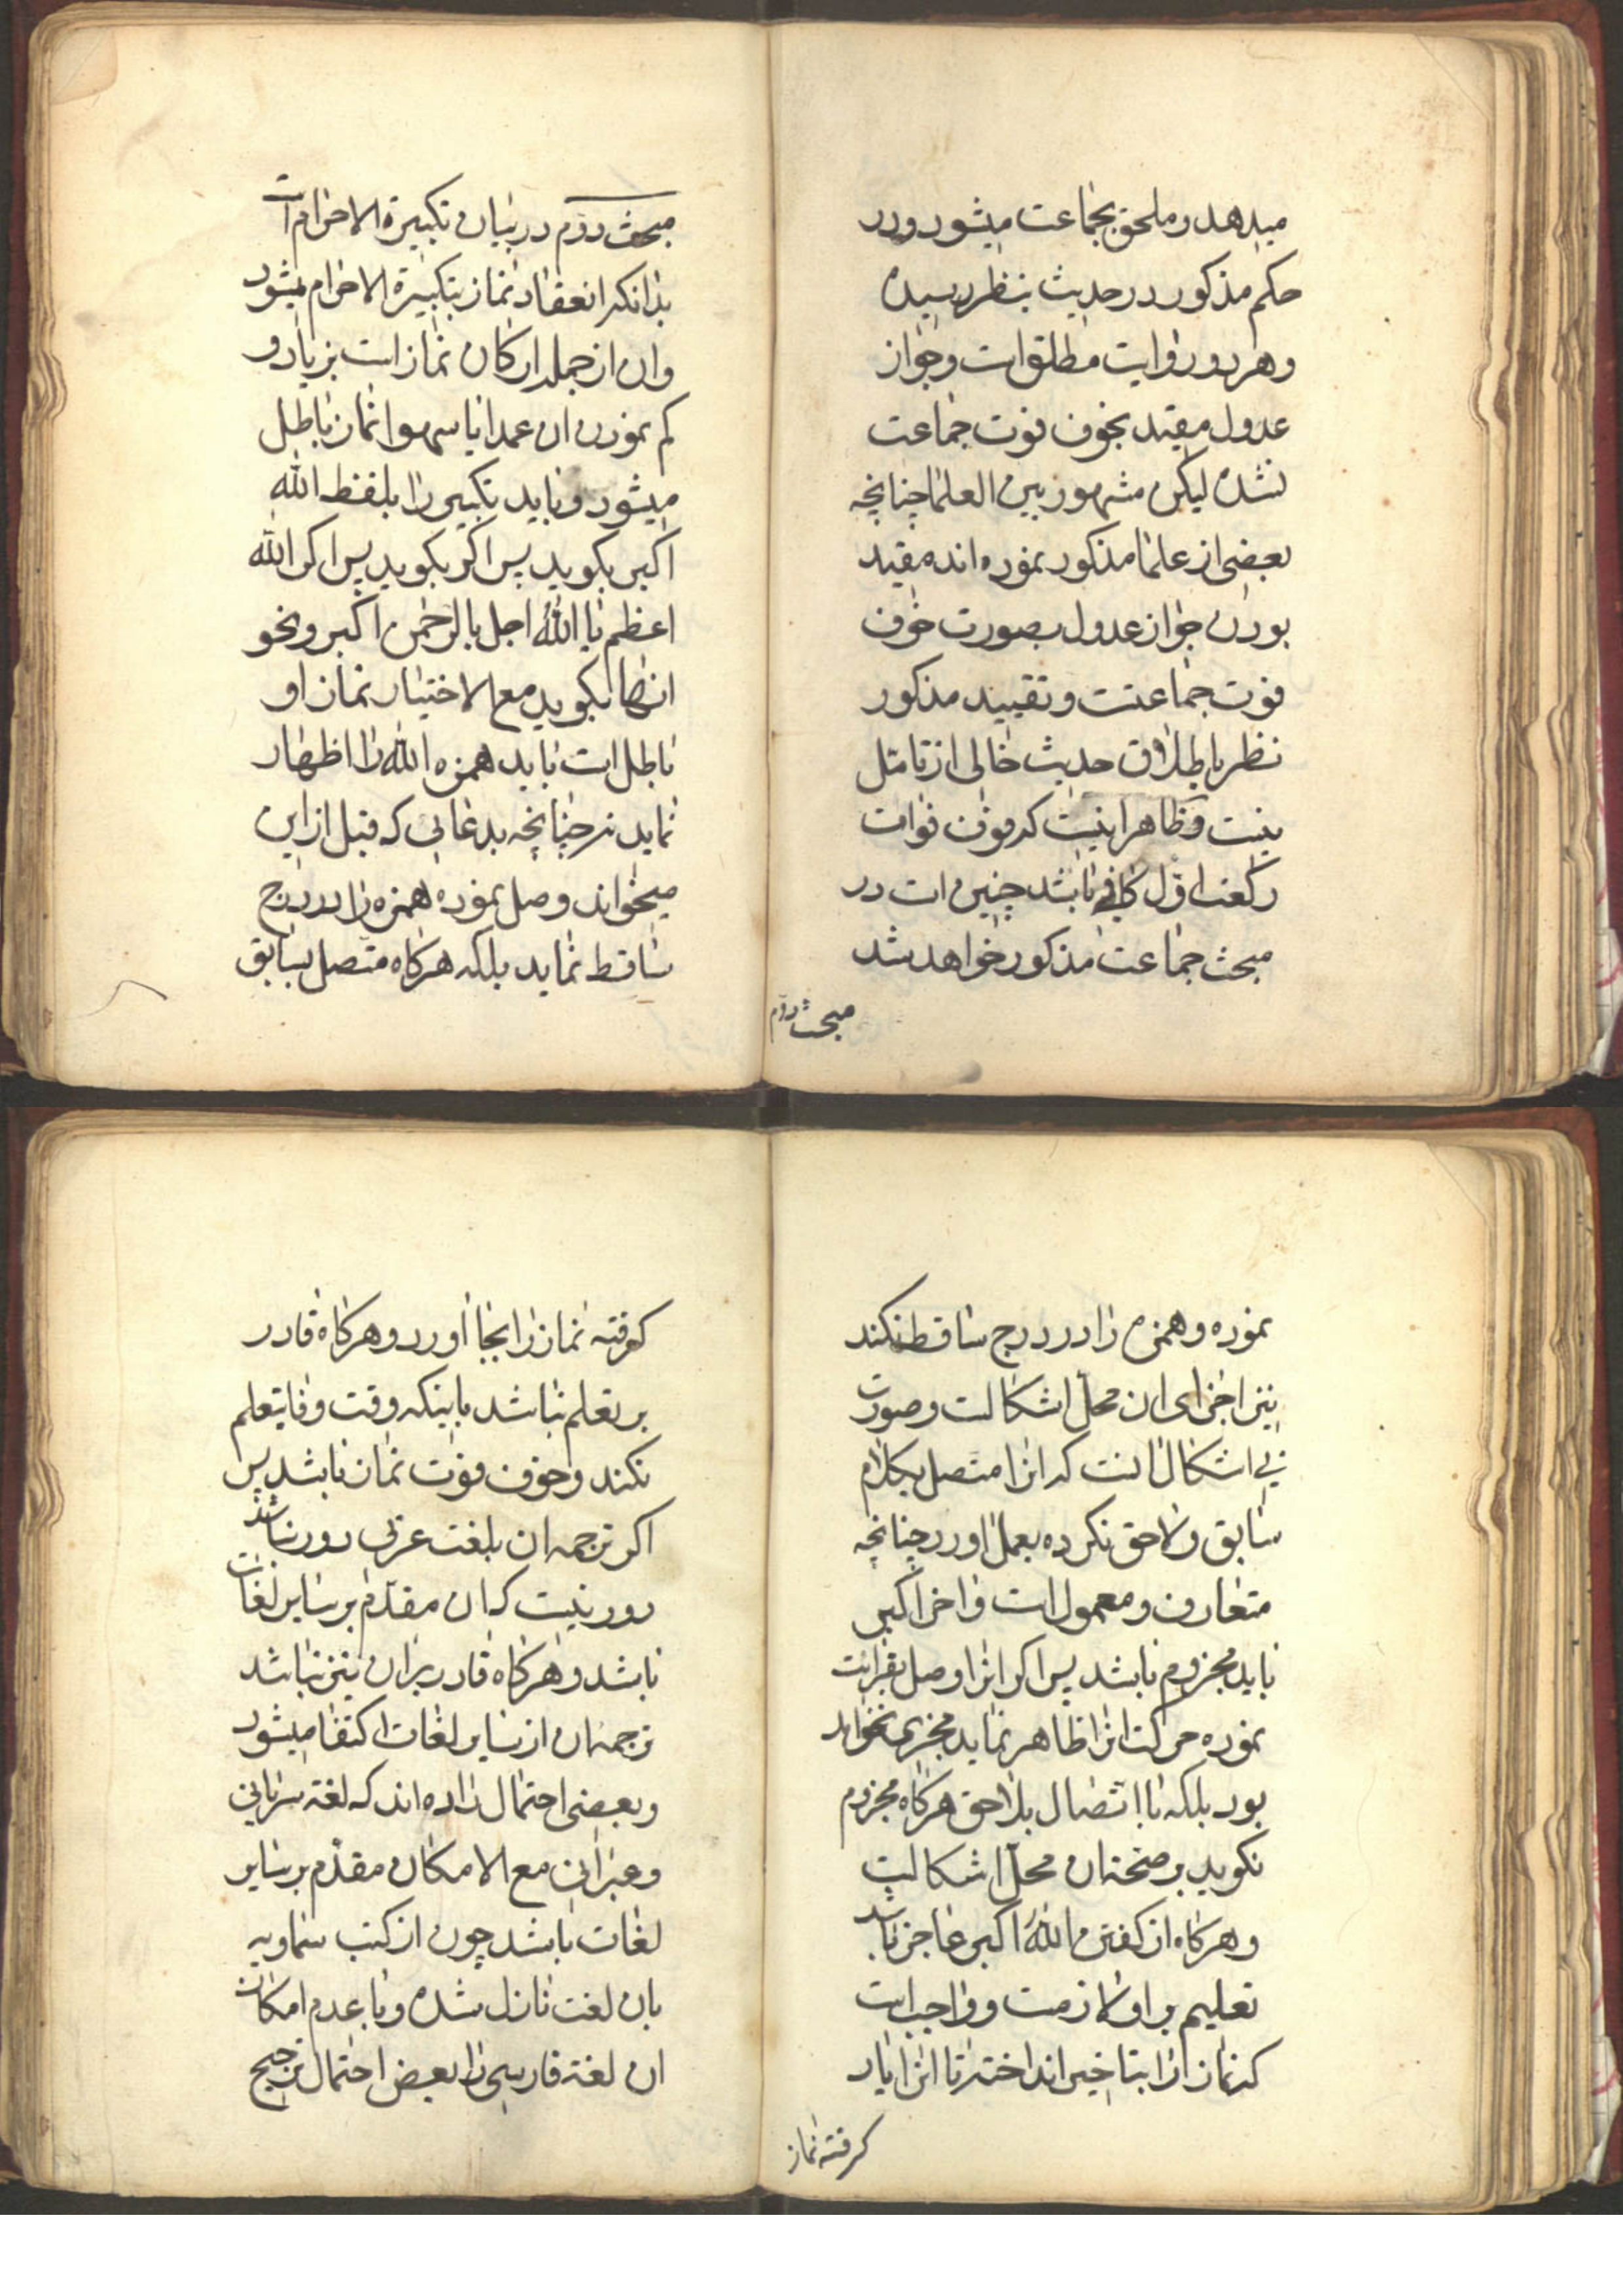 میدهد و ملحق بجماعت میشود و در
حکم مذکور در حدیث بنظر رسیده
و هر دو روایت مطلق است و جواز
عدول مقید بخوف فوت جماعت
نشده لیکن مشهور بین العلما چنانچه
بعضی از علما مذکور نموده اند مقید
بودن جواز عدول بصورت خوف
فوت جماعتت و تقیید مذکور
نظر باطلاق حدیث خالی از تامل
نیست و ظاهر اینست که فوت
رکعت اول کافی باشد چنین است در
مبحث جماعت مذکور خواهد شد
مبحث دوم
مبحث دوم در بیان تکبیرة الاحرام است
بدانکه انعقاد نماز بتکبیرة الاحرام میشود
و ان از جمله ارکان نماز است بزیاد و
کم نمودن ان عمدا یا سهوا نماز باطل
میشود و باید تکبیر را بلفظ الله
اکبر بگوید پس اگر بگوید پس اگر الله
اعظم یا الله اجل یا الرحمن اکبر و نحو
انها بگوید مع الاختیار نماز او
باطل است باید همزه الله را اظهار
نماید نه چنانچه بدعائی که قبل از این
میخواند وصل نموده همزه را در درج
ساقط نماید بلکه هرکاه متصل بسابق
نموده و همزه را در درج ساقط نکند
نیز اجزای ان محل اشکالست و صورت
بی اشکال انست که انرا متصل بکلام
سابق و لاحق نکرده بعمل اورد چنانچه
متعارف و معمول است و اخر اکبر
باید مجزوم باشد پس اگر انرا وصل بقرائت
نموده حرکت انرا ظاهر نماید مجزی نخواهد
بود بلکه با اتصال بلاحق هرکاه مجزوم
نکوید بر صحت ان محل اشکالست
و هرکاه از کفتن الله اکبر عاجز باشد
تعلیم بر او لازمست و واجب است
که نماز را بتاخیر انداخته تا انرا یاد
کرفته نماز
کرفته نماز را بجا اورد و هرکاه قادر
بر تعلم نباشد باینکه وقت وفا بتعلم
نکند و خوف فوت نماز باشد پس
اکر ترجمه ان بلغت عربی دور نباشد
دور نیست که ان مقدم بر سایر لغات
باشد و هرکاه قادر بران نیز نباشد
ترجمه ان از سایر لغات اکتفا میشود
و بعضی احتمال داده اند که لغة سریانی
و عبرانی مع الامکان مقدم بر سایر
لغات باشد چون از کتب سماویه
بان لغت نازل شده و با عدم امکان
ان لغة فارسی را بعض احتمال ترجیح